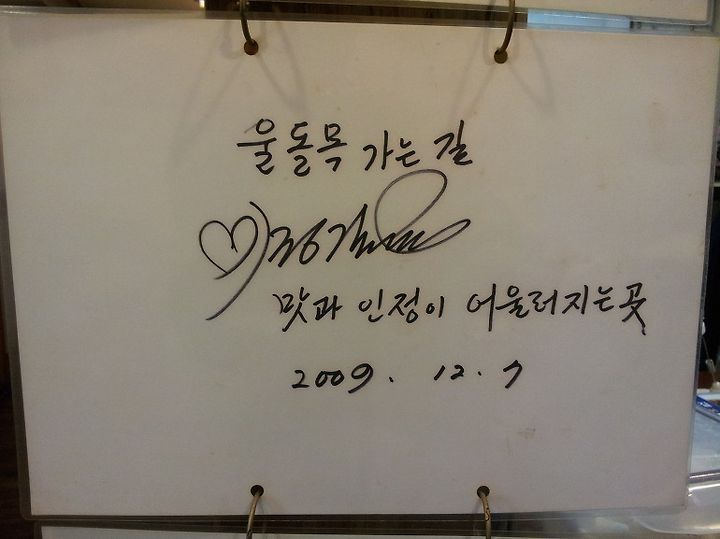 울돌목 가는 길
맛과 인정이 어울러지는 곳
2009. 12. 7